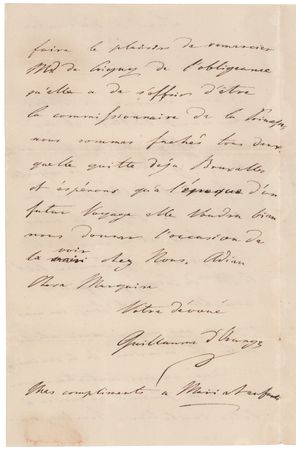 faire le plaisir de remercier
Md de Crigny de l'obligeance
qu'elle a de s'offrir d'être
la commissionnaire de la Princesse
nous sommes fachés tous deux
quelle quitte déja Bruxelles
et espérons qu'a l'époque d'un
futur Voyage elle Voudra bien
nous donner l'occasion de
la voir chez Nous. Adieu
Chere Marquise
Votre dévoué
Guillaume d'Orange
Mes compliments a